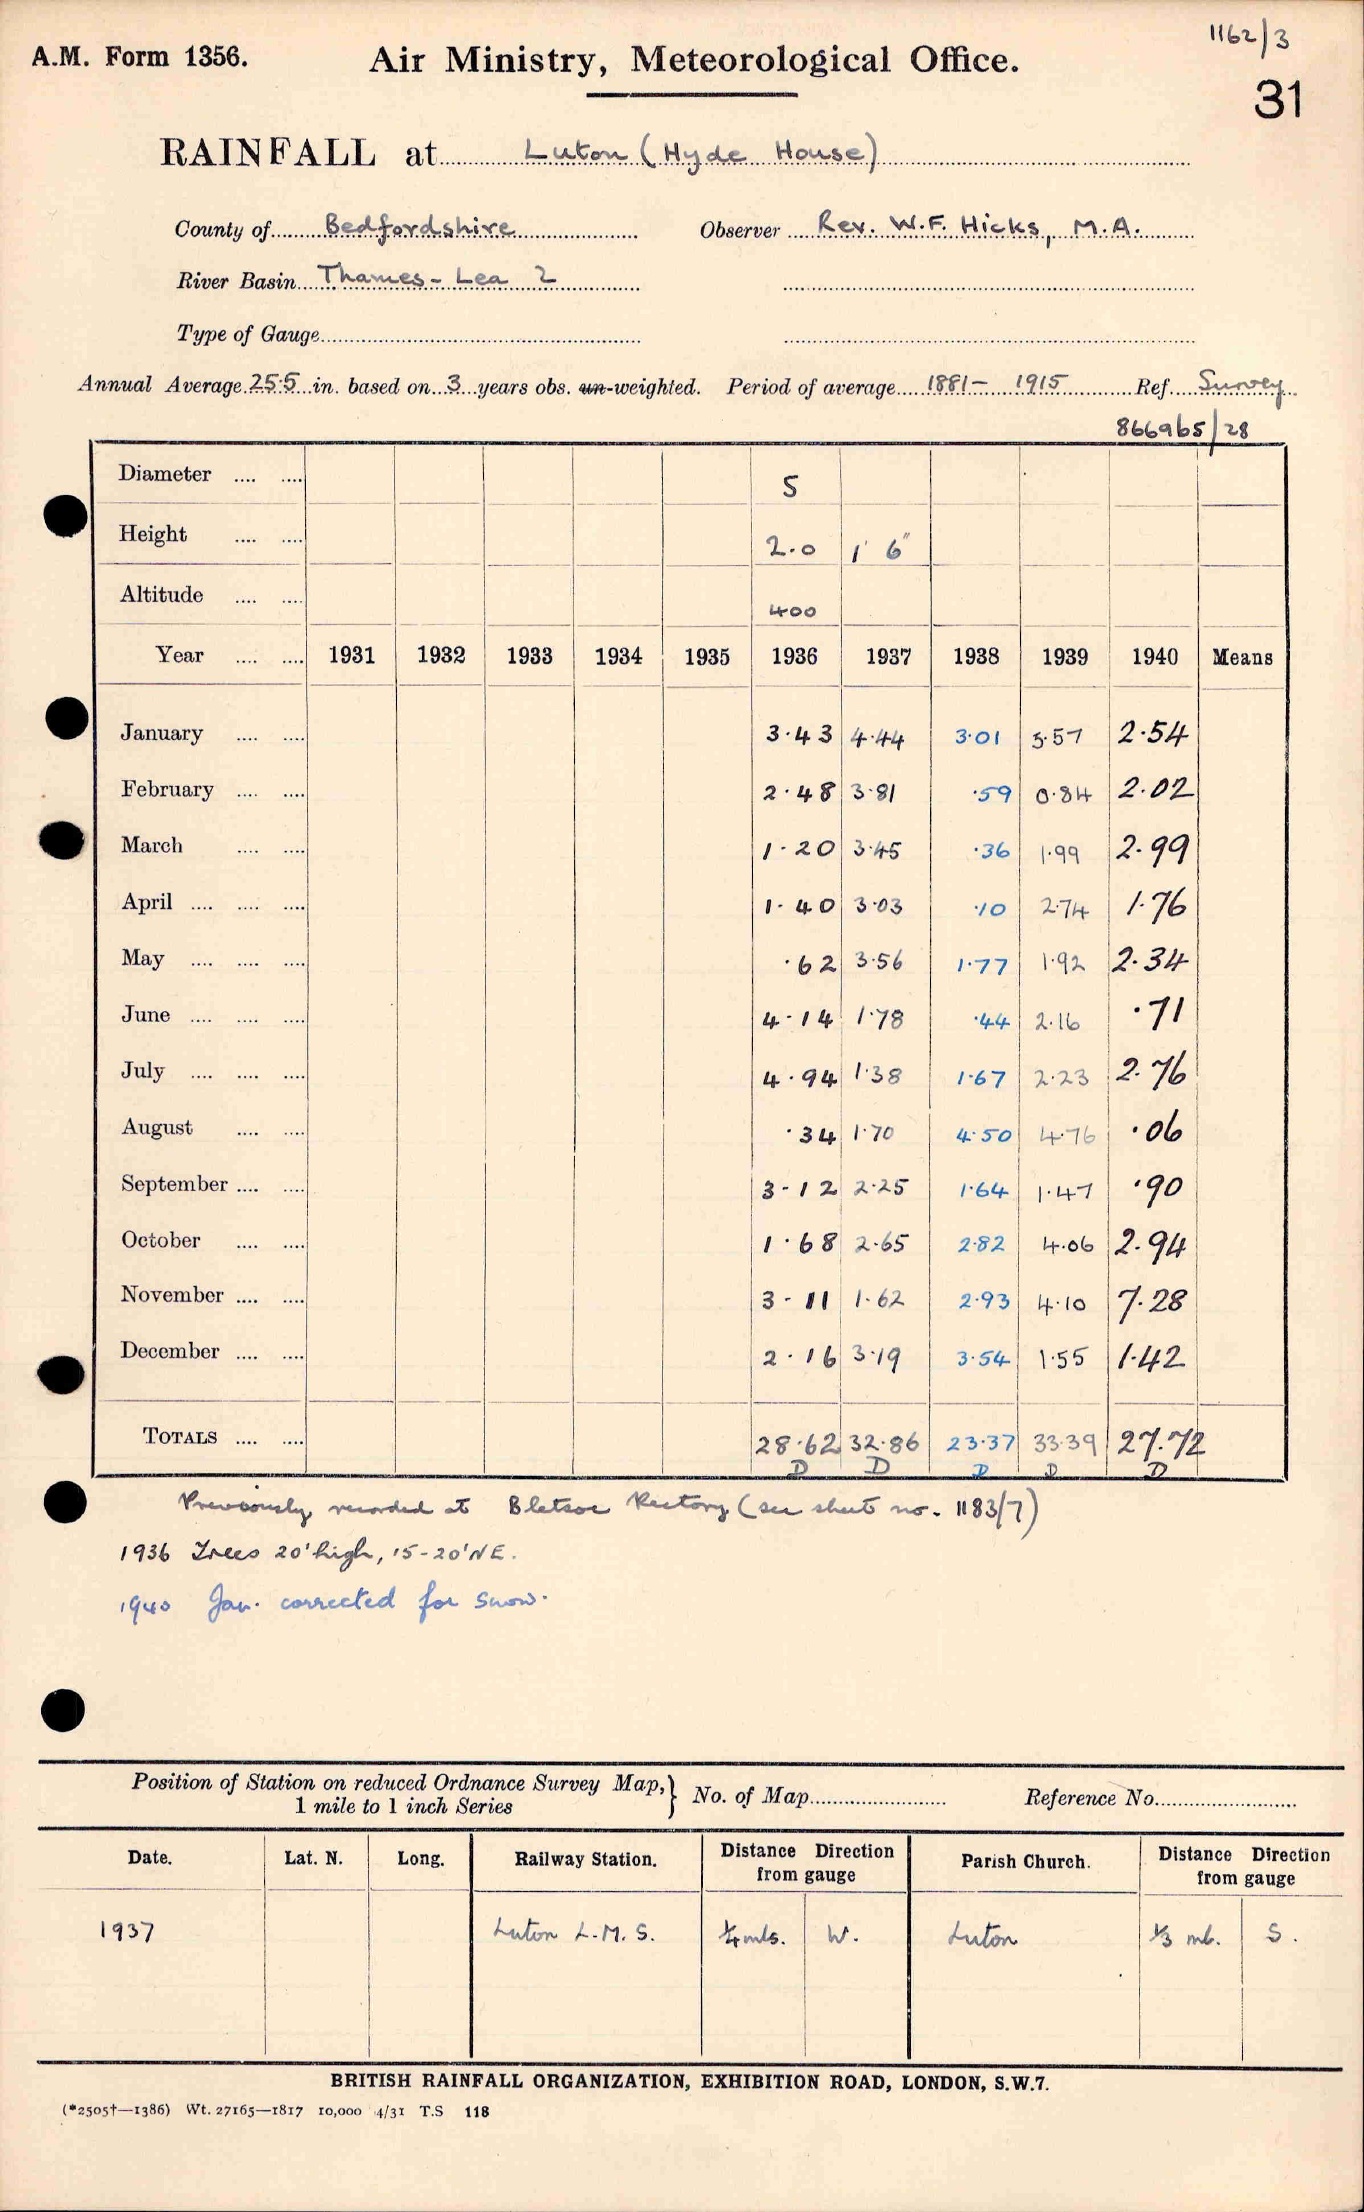 1162/3
A.M. Form 1356. Air Ministry, Meteorological Office.
31
RAINFALL at Luton (Hyde House)
County of Bedfordshire Observer Rev. W.F. Hicks, M.A.
River Basin Thames - Lea 2
Type of Gauge
Annual Average 25.5 in. based on 3 years obs. un-weighted. Period of average 1881 - 1915 Ref. Survey
866965/28
Diameter .... .... 5
Height .... .... 2.0 1' 6"
Altitude .... .... 400
Year .... .... 1931 1932 1933 1934 1935 1936 1937 1938 1939 1940 Means
January .... .... 3.43 4.44 3.01 5.57 2.54
February .... .... 2.48 3.81 .59 0.84 2.02
March .... .... 1.20 3.45 .36 1.99 2.99
April .... .... .... 1.40 3.03 .10 2.74 1.76
May .... .... .... .62 3.56 1.77 1.92 2.34
June .... .... .... 4.14 1.78 .44 2.16 .71
July .... .... .... 4.94 1.38 1.67 2.23 2.76
August .... .... .34 1.70 4.50 4.76 .06
September .... .... 3.12 2.25 1.64 1.47 .90
October .... .... 1.68 2.65 2.82 4.06 2.94
November .... .... 3.11 1.62 2.93 4.10 7.28
December .... .... 2.16 3.19 3.54 1.55 1.42
TOTALS .... .... 28.62 32.86 23.37 33.39 27.72
D D D D D
Previously recorded at Bletsoe Rectory (see sheet no. 1183/7)
1936 Trees 20' high, 15-20' NE.
1940 Jan. corrected for snow.
Position of Station on reduced Ordnance Survey Map, } No. of Map Reference No.
1 mile to 1 inch Series
Date. Lat. N. Long. Railway Station. Distance Direction from gauge Parish Church. Distance Direction from gauge
1937 Luton L.M.S. 1/4 mls. W. Luton 1/3 ml. S.
BRITISH RAINFALL ORGANIZATION, EXHIBITION ROAD, LONDON, S.W.7.
(*2505†—1386) Wt. 27165—1817 10,000 4/31 T.S 118